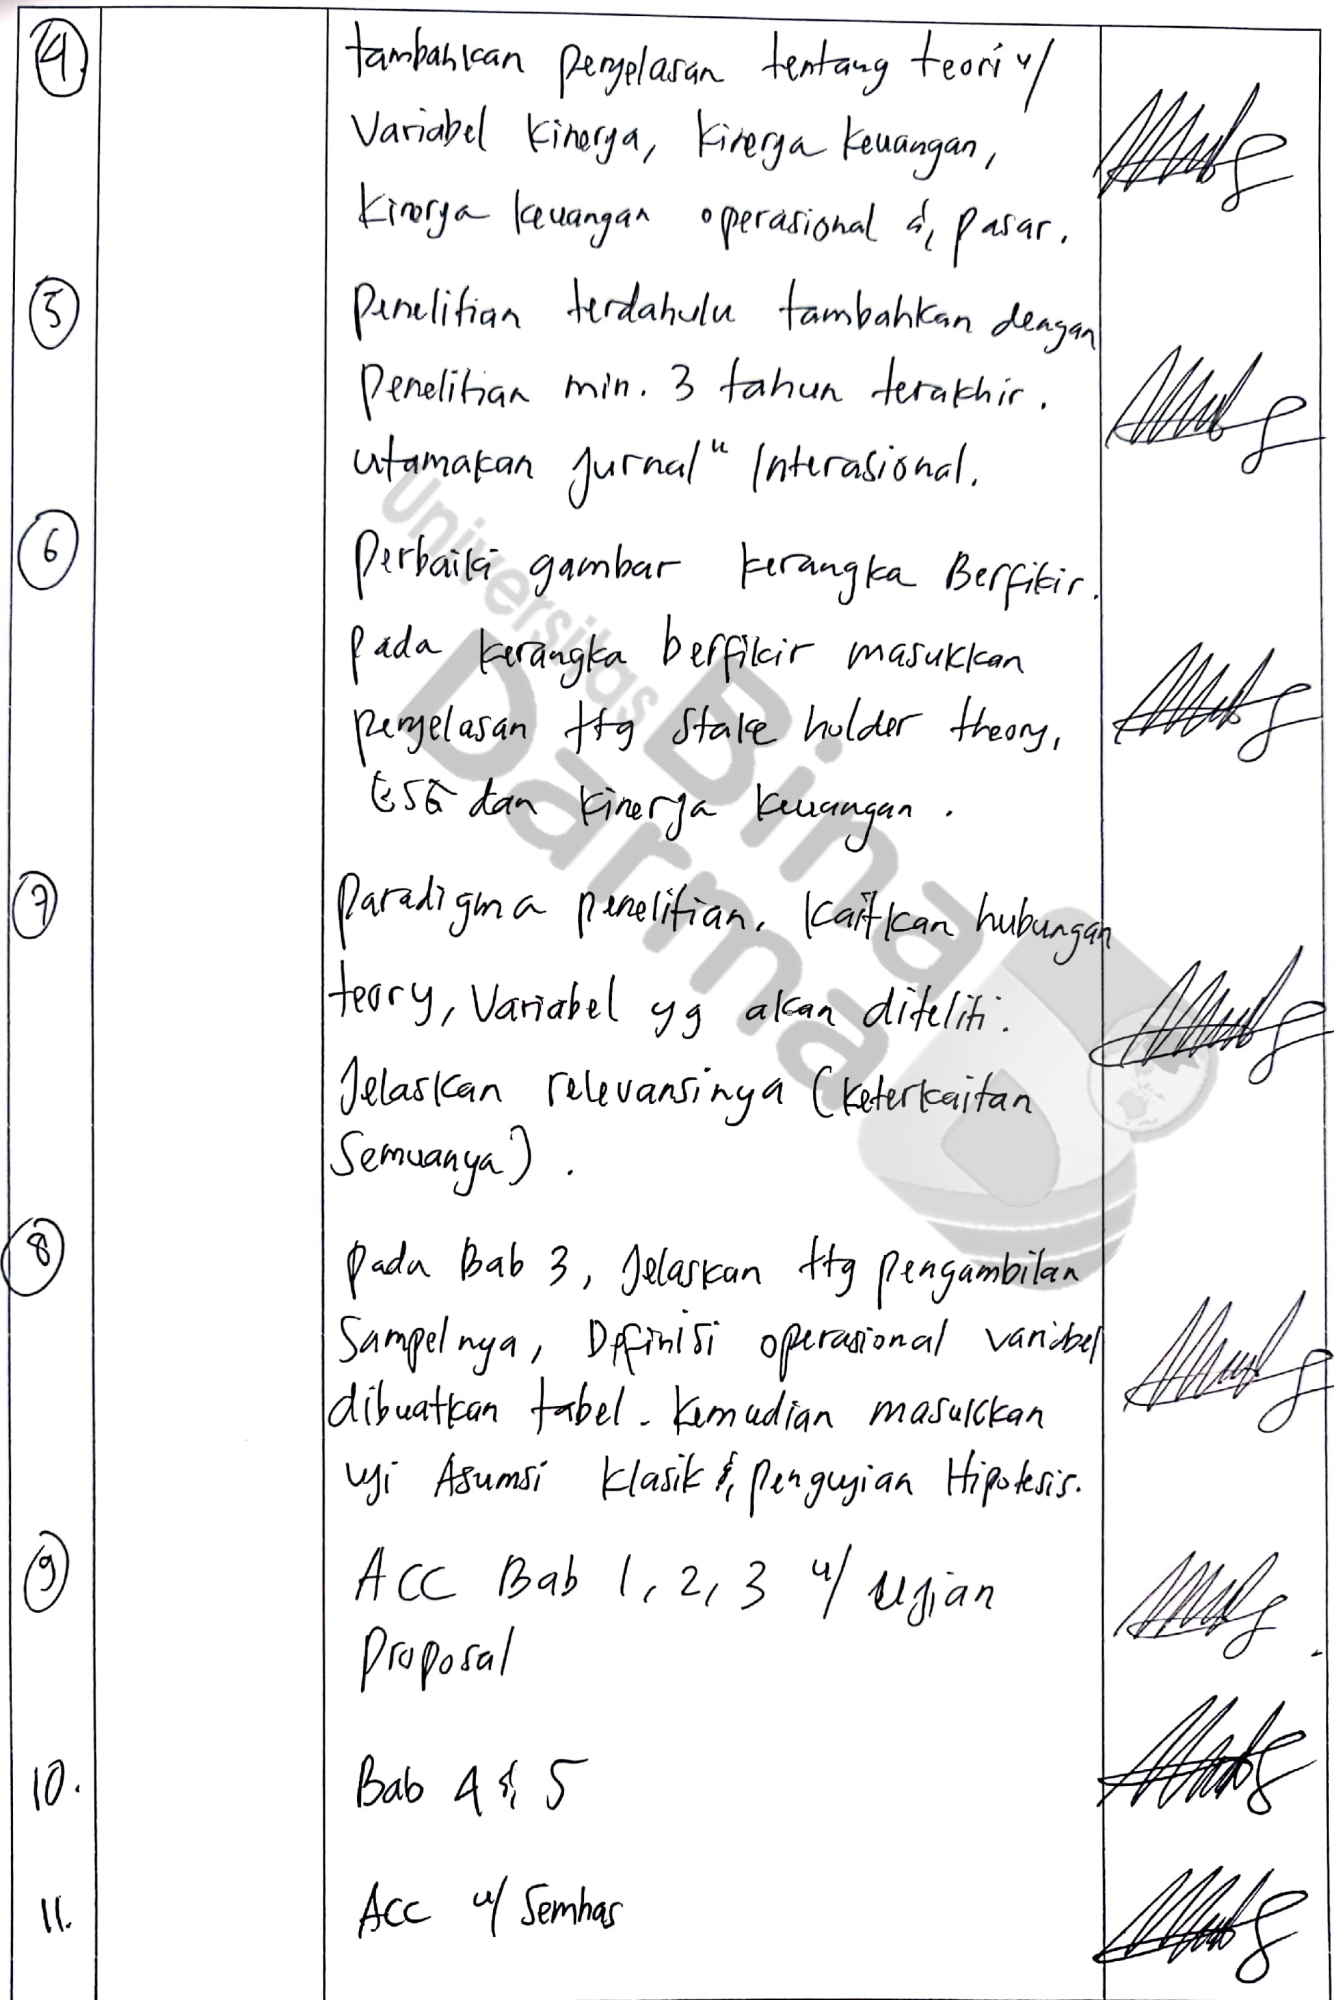 4.
tambahkan penjelasan tentang teori u/
Variabel Kinerja, Kinerja Keuangan,
Kinerja keuangan operasional & pasar.
5
Penelitian terdahulu tambahkan dengan
Penelitian min. 3 tahun terakhir.
utamakan Jurnal" Interasional.
6
Perbaiki gambar kerangka Berfikir.
pada kerangka berfikir masukkan
penjelasan ttg Stake holder theory,
ESG dan Kinerja Keuangan.
7
Paradigma penelitian. Kaitkan hubungan
teory, Variabel yg akan diteliti.
Jelaskan relevansinya (Keterkaitan
Semuanya).
8
pada Bab 3, Jelaskan ttg pengambilan
Sampelnya, Definisi operasional variabel
dibuatkan tabel. Kemudian masukkan
uji Asumsi Klasik & Pengujian Hipotesis.
9
ACC Bab 1, 2, 3 u/ ujian
Proposal
10.
Bab 4 & 5
11.
Acc u/ Semhas
Universitas
Bina
Darma